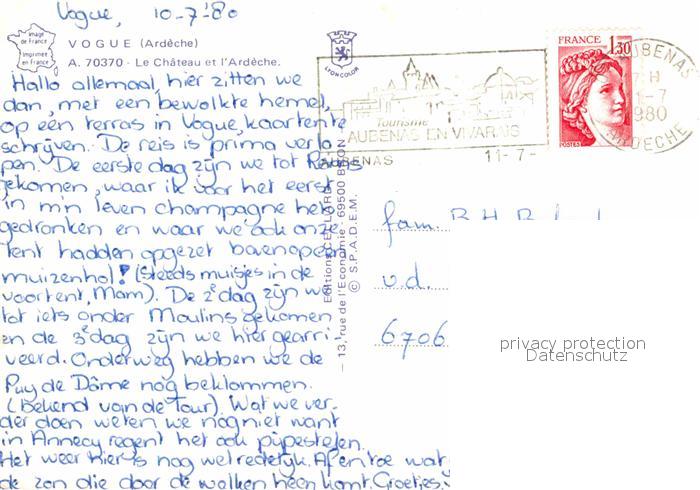 Vogue, 10-7-'80
Image de France
Imprimée en France
VOGUE (Ardèche)
A. 70370 - Le Château et l'Ardèche.
LYONCOLOR
Hallo allemaal, hier zitten we
dan, met een bewolkte hemel,
op een terras in Vogue, kaarten te
schrijven. De reis is prima verlo
pen. De eerste dag zijn we tot Reims
gekomen, waar ik voor het eerst
in m'n leven champagne heb
gedronken en waar we ook onze
tent hadden opgezet bovenop een
muizenhol! (Steeds muisjes in de
voortent, Mam). De 2e dag zijn we
tot iets onder Moulins gekomen
en de 3e dag zijn we hier gearri-
veerd. Onderweg hebben we de
Puy de Dôme nog beklommen.
(Bekend van de Tour). Wat we ver-
der doen weten we nog niet want
in Annecy regent het ook pijpestelen.
Het weer hier is nog wel redelijk. Af en toe wat
de zon die door de wolken heen komt. Groetjes,
Tourisme
AUBENAS EN VIVARAIS
AUBENAS 11-7-
FRANCE 1,30
POSTES
AUBENAS
17 H
11-7
1980
ARDECHE
- 13, rue de l'Economie - 69500 BRON -
© S.P.A.D.E.M.
fam.
v.d.
6706
privacy protection
Datenschutz